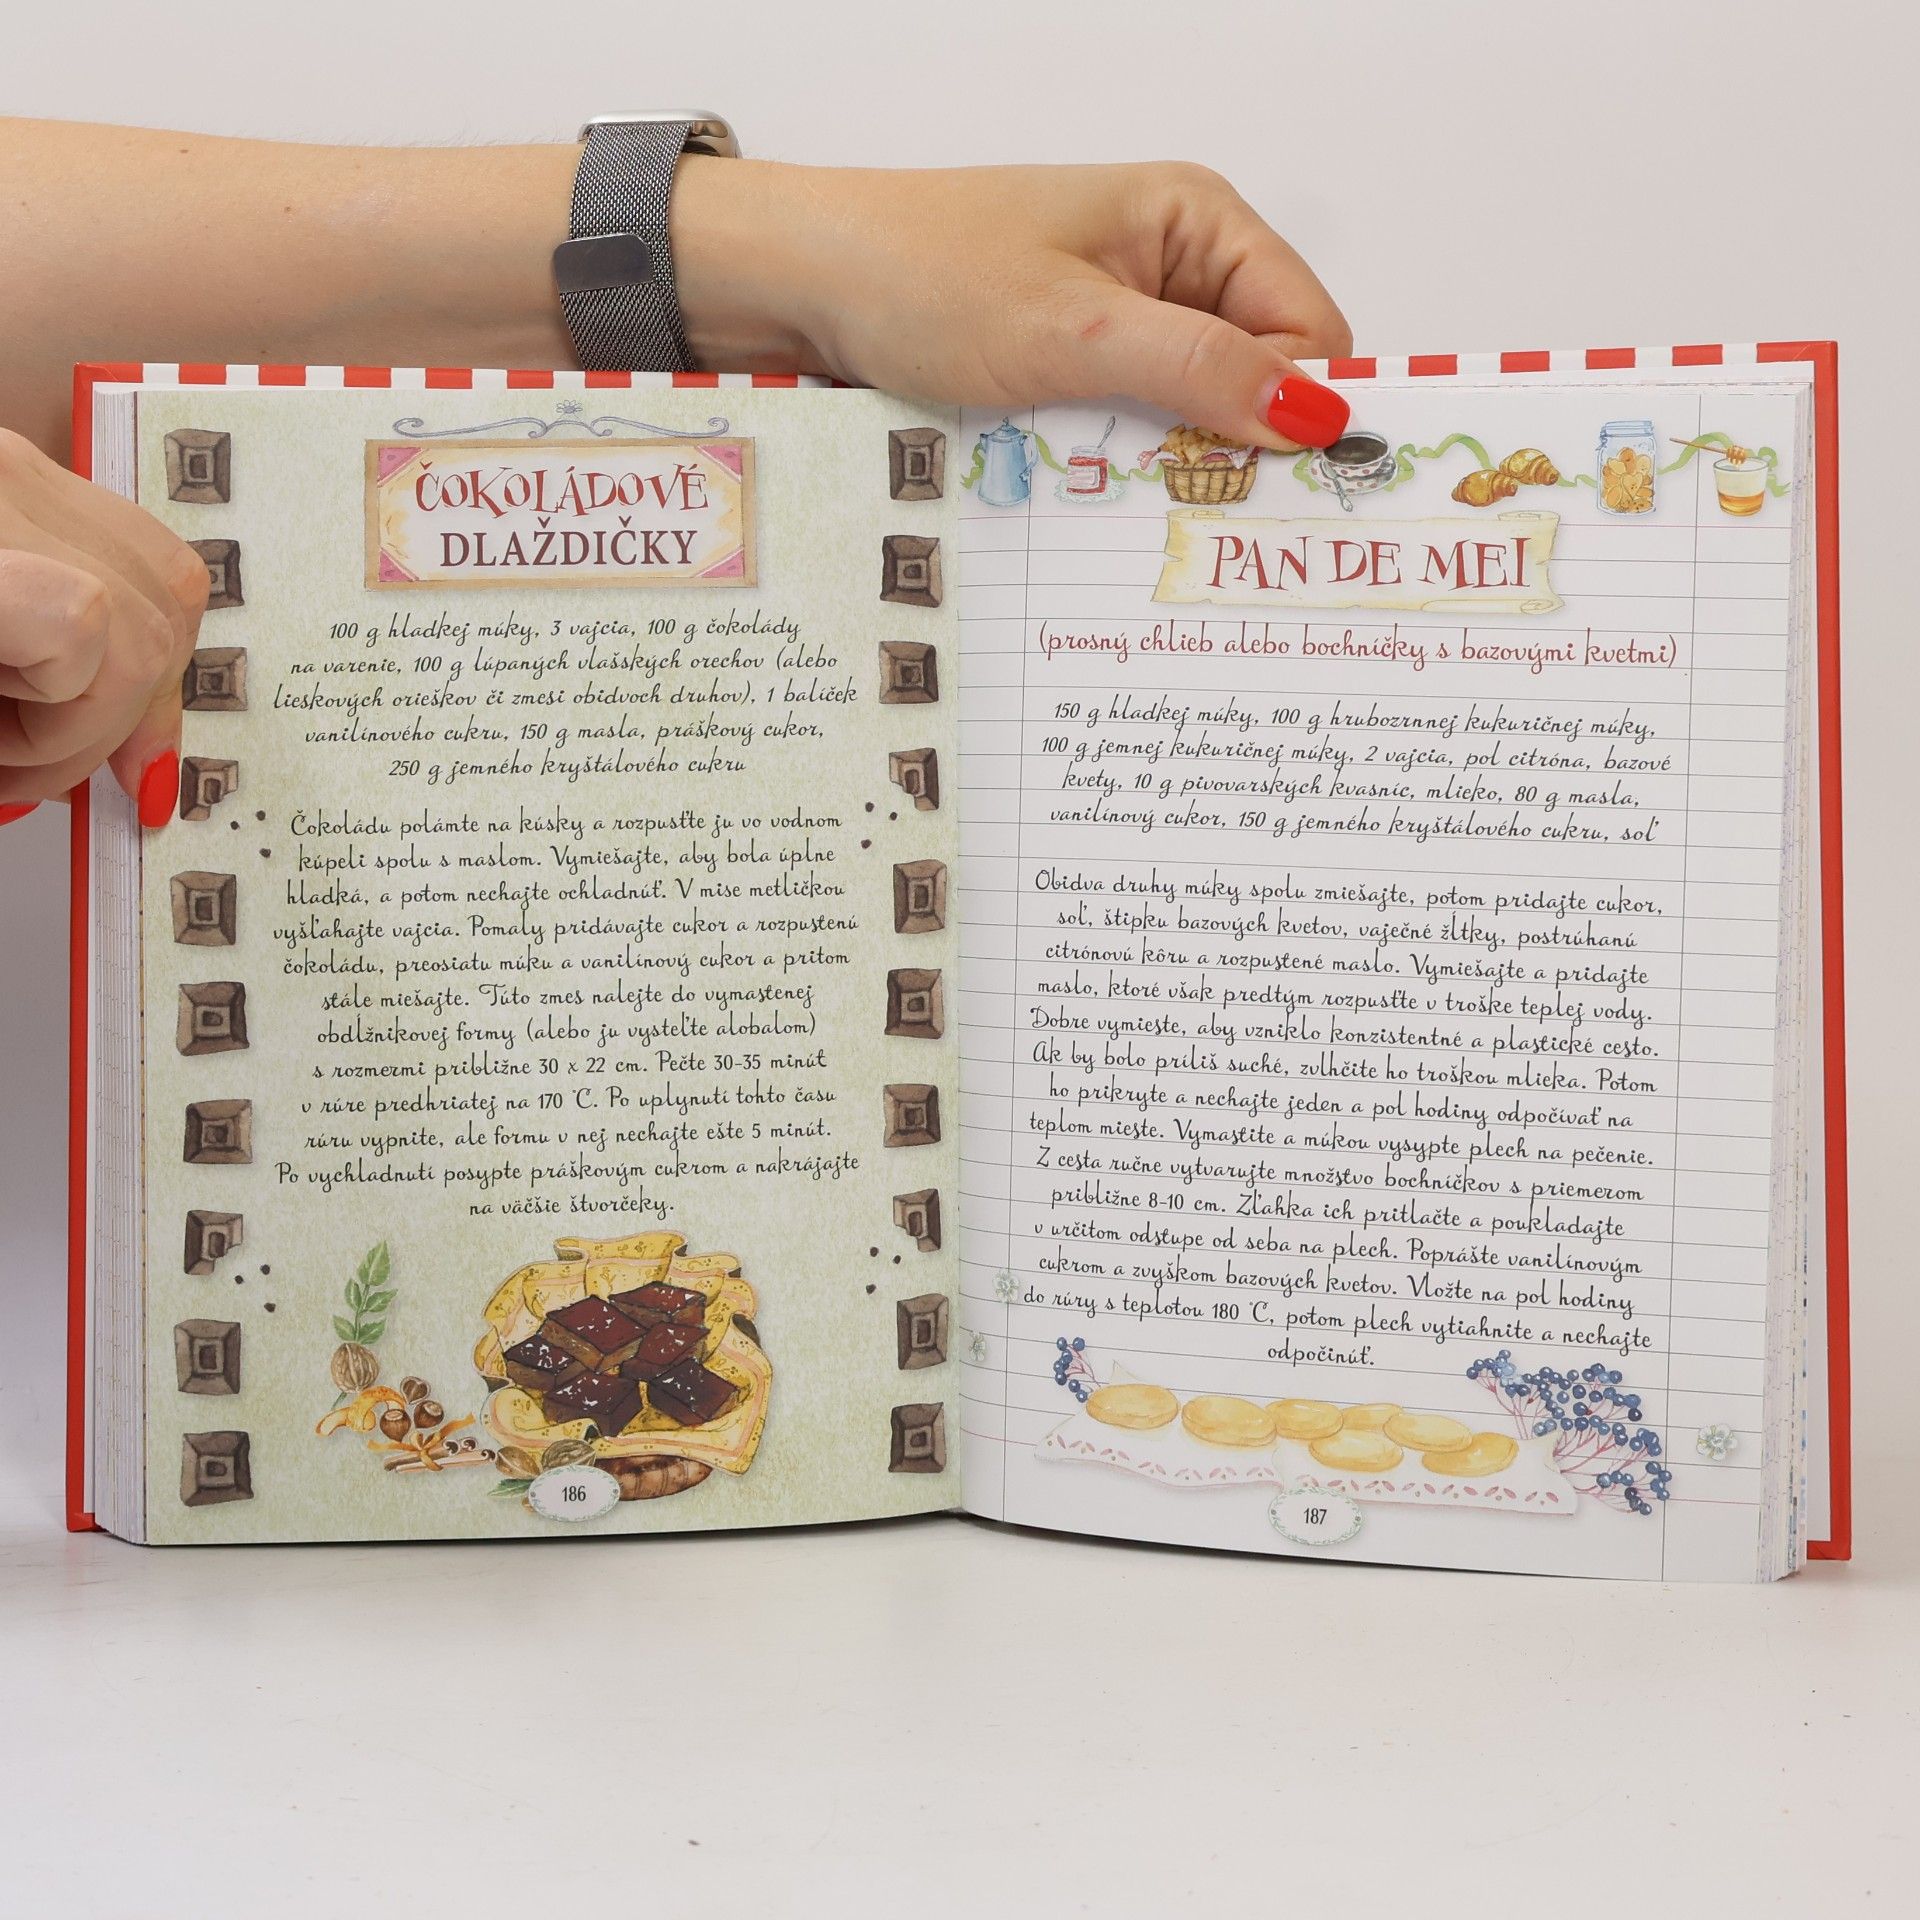 ČOKOLÁDOVÉ
DLAŽDIČKY
100 g hladkej múky, 3 vajcia, 100 g čokolády
na varenie, 100 g lúpaných vlašských orechov (alebo
lieskových orieškov či zmesi obidvoch druhov), 1 balíček
vanilínového cukru, 150 g masla, práškový cukor,
250 g jemného kryštálového cukru
Čokoládu polámte na kúsky a rozpusťte ju vo vodnom
kúpeli spolu s maslom. Vymiešajte, aby bola úplne
hladká, a potom nechajte ochladnúť. V mise metličkou
vyšľahajte vajcia. Pomaly pridávajte cukor a rozpustenú
čokoládu, preosiatu múku a vanilínový cukor a pritom
stále miešajte. Túto zmes nalejte do vymastenej
obdĺžnikovej formy (alebo ju vysteľte alobalom)
s rozmermi približne 30 x 22 cm. Pečte 30-35 minút
v rúre predhriatej na 170 °C. Po uplynutí tohto času
rúru vypnite, ale formu v nej nechajte ešte 5 minút.
Po vychladnutí posypte práškovým cukrom a nakrájajte
na väčšie štvorčeky.
186
PAN DE MEI
(prosný chlieb alebo bochníčky s bazovými kvetmi)
150 g hladkej múky, 100 g hrubozrnnej kukuričnej múky,
100 g jemnej kukuričnej múky, 2 vajcia, pol citróna, bazové
kvety, 10 g pivovarských kvasníc, mlieko, 80 g masla,
vanilínový cukor, 150 g jemného kryštálového cukru, soľ
Obidva druhy múky spolu zmiešajte, potom pridajte cukor,
soľ, štipku bazových kvetov, vaječné žĺtky, postrúhanú
citrónovú kôru a rozpustené maslo. Vymiešajte a pridajte
maslo, ktoré však predtým rozpusťte v troške teplej vody.
Dobre vymieste, aby vzniklo konzistentné a plastické cesto.
Ak by bolo príliš suché, zvlhčite ho troškou mlieka. Potom
ho prikryte a nechajte jeden a pol hodiny odpočívať na
teplom mieste. Vymastite a múkou vysypte plech na pečenie.
Z cesta ručne vytvarujte množstvo bochníčkov s priemerom
približne 8-10 cm. Zľahka ich pritlačte a poukladajte
v určitom odstupe od seba na plech. Poprášte vanilínovým
cukrom a zvyškom bazových kvetov. Vložte na pol hodiny
do rúry s teplotou 180 °C, potom plech vytiahnite a nechajte
odpočinúť.
187